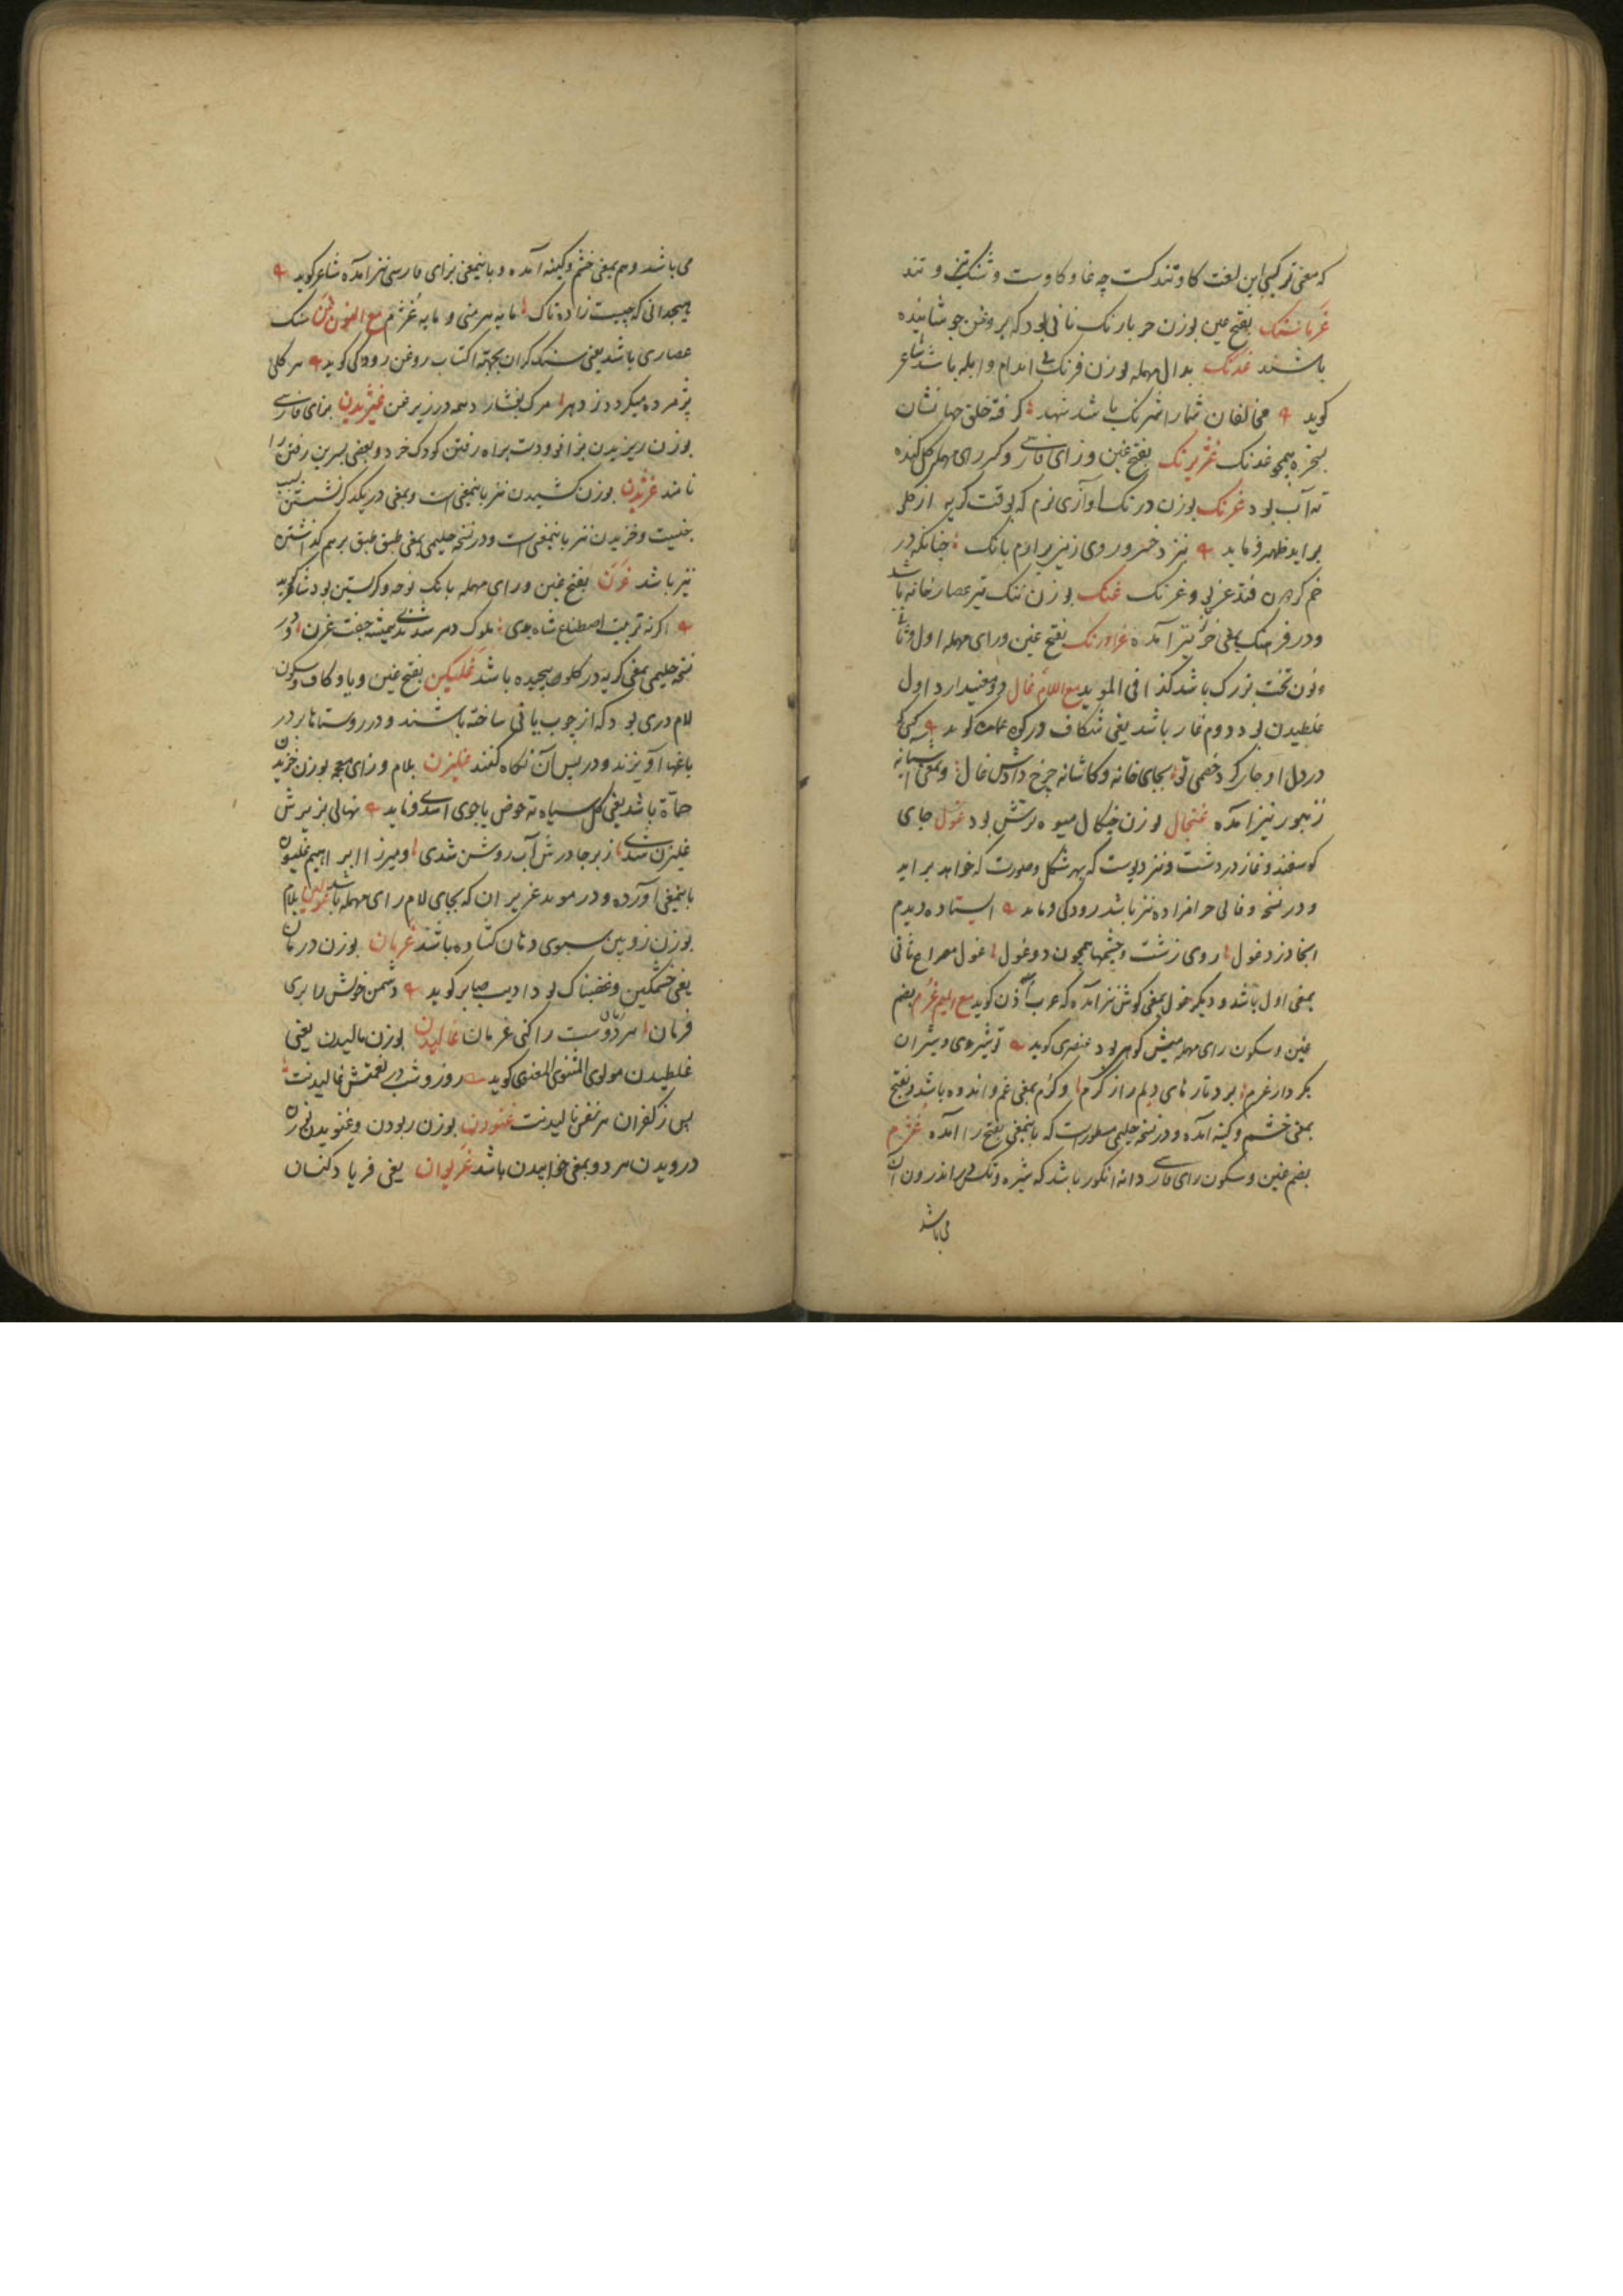 که معنی ترکیبی این لغت کاو تندکست چه غا و کاوست و شنک تیز و تند
غرمانشنک بفتح عین بوزن نانی بود که بروغن جوشانیده
باشند غدنک بدال مهمله بوزن فرنک بی اندام و ابله باشد شاعر
کوید مخالفان شما را شرنک باشد شهد کرفته خلق جهانشان
بسخره همچو غدنک غژیرنک بفتح غین و زای فارسی و کسر رای مهمله کل کنده
ته آب بود غرنک بوزن درنک آوازی نرم که بوقت کریه از کلو
براید ظهیر فرماید بانک چنانکه در
خم غنک بوزن تنک تیر عصارخانه باشد
و در فرهنک بمعنی خر نیز آمده غراورنک بفتح غین و رای مهمله اول و ثانی
ونون تخت بزرک باشد کذا فی الموید مع اللام غال دو معنی دارد اول
غلطیدن بود دوم غار باشد یعنی شکاف در کوه کوید کسی کو
در دل او جای کرد خصمی تو بجای خانه و کاشانه چرخ دادش غال و بمعنی آشیانه
زنبور نیز آمده غنجال بوزن چنکال میوه ترش بود غول جای
کوسفند و غار در دشت و نیز دیوست که بهر شکل و صورت که خواهد براید
و در نسخه وفائی حرامزاده نیز باشد رودکی فرماید ایستاده دیدم
انجا دزد غول روی زشت و چشمها همچون دو غول غول مصراع ثانی
بمعنی اول باشد و دیگر غول بمعنی کوش نیز آمده که عرب آنرا اذن کوید مع المیم غرم بضم
غین و سکون رای مهمله میش کوهی بود عنصری کوید تو شیروی و شیران
بکردار غرم برد تار های دیلم راز کرم و کرم بمعنی غم و اندوه باشد و بفتح
بمعنی خشم و کینه آمده و در نسخه حلیمی مسطورست که باینمعنی بفتح را آمده غژم
بضم غین و سکون زای فارسی دانه انکور باشد که شیره و تکس در اندرون آن
می باشد
می باشد و هم بمعنی خشم و کینه آمده و باینمعنی بزای فارسی نیز آمده شاعر کوید
هیچ دانی که چیست زاده تاک مایه هر منی و مایه غژم مع النون غن سنک
عصاری باشد یعنی سنک کران بجهة اکتساب روغن رودکی کوید هر کلی
پژمرده میکردد ز دهر مرک بفشارد همه در زیر غن غیژیدن بزای فارسی
بوزن ریزیدن بزانو و دست براه رفتن کودک خرد و بعضی بسرین رفتن را
نامند غژیدن بوزن کشیدن نیز باینمعنی است و بمعنی در یکدیکر نشستن بسبب
جنسیت و خزیدن نیز باینمعنی است و در نسخه حلیمی بمعنی طبق طبق بر هم گذاشتن
نیز باشد غرن بفتح غین و رای مهمله بانک نوحه و کریستن بود شاکر کوید
اگرنه تربیت اصطناع شاه بدی ملوک دهر شدندی همیشه جفت غرن و در
نسخه حلیمی بمعنی کریه در کلو پیچیده باشد غلیکین بفتح غین و یا و کاف و سکون
لام دری بود که از چوب یا نی ساخته باشند و در روستاها بر در
باغها آویزند و در پس آن نکاه کنند غلیزن بلام و زای معجمه بوزن خزیدن
حمأة باشد یعنی کل سیاه ته حوض یا جوی اسدی فرماید نهالی بزیرش
غلیزن شدی زبر چادرش آب روشن شدی و میرزا ابراهیم غلیون
باینمعنی آورده و در موید غریزن که بجای لام رای مهمله باشد غولین بلام
بوزن زوبین سبوی دهان کشاده باشد غرمان بوزن درمان
یعنی خشمکین و غضبناک بود ادیب صابر کوید دشمن خویش را بری
فرمان هر زمان دوست را کنی غرمان غالیدن بوزن مالیدن یعنی
غلطیدن مولوی المثنوی المعنوی کوید روز و شب در نعمتش غالیدنت
پس ز کفران هر نفس نالیدنت غنودن بوزن ربودن و غنویدن بوزن
درویدن هر دو بمعنی خوابیدن باشد غریوان یعنی فریاد کنان